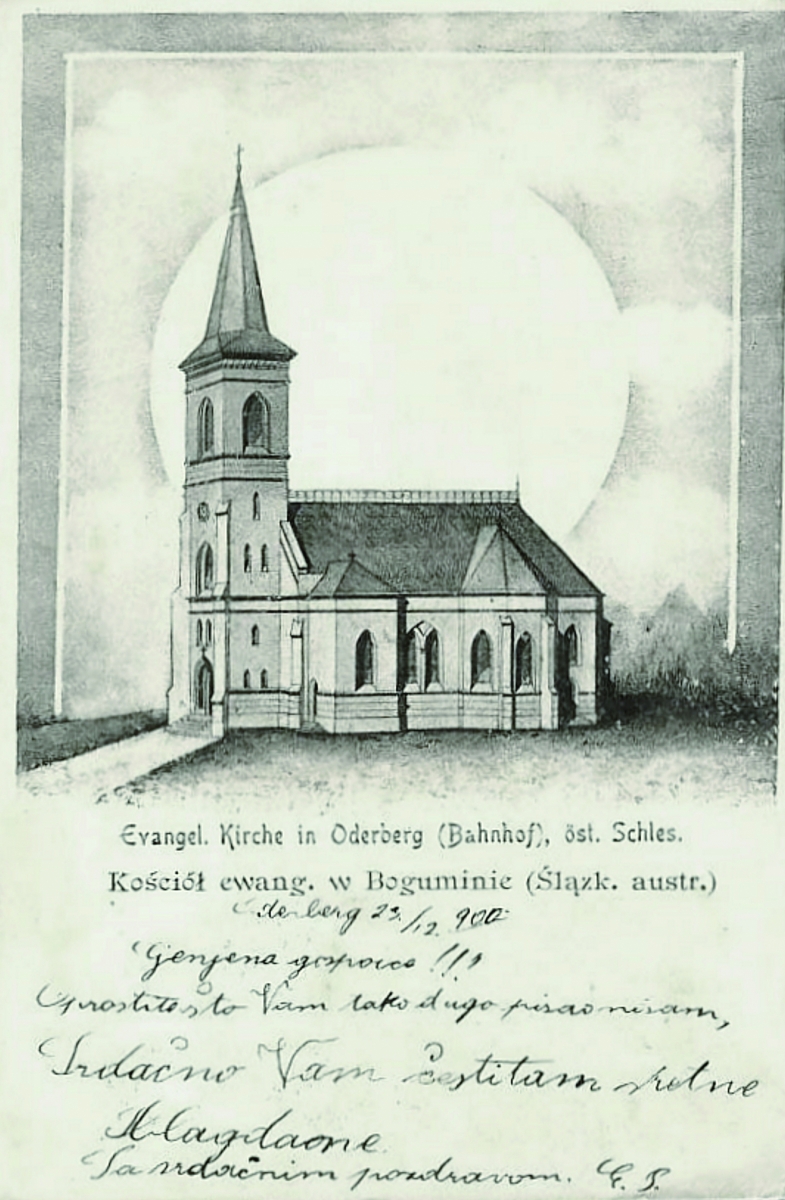 Evangel. Kirche in Oderberg (Bahnhof), öst. Schles.
Kościół ewang. w Boguminie (Ślązk. austr.)
Oderberg 23./12. 900.
Cjenjena gospoice !!!
Oprostite što Vam tako dugo pisao nisam,
Srdačno Vam čestitam sretne
Blagdaone.
Sa srdačnim pozdravom. G. S.